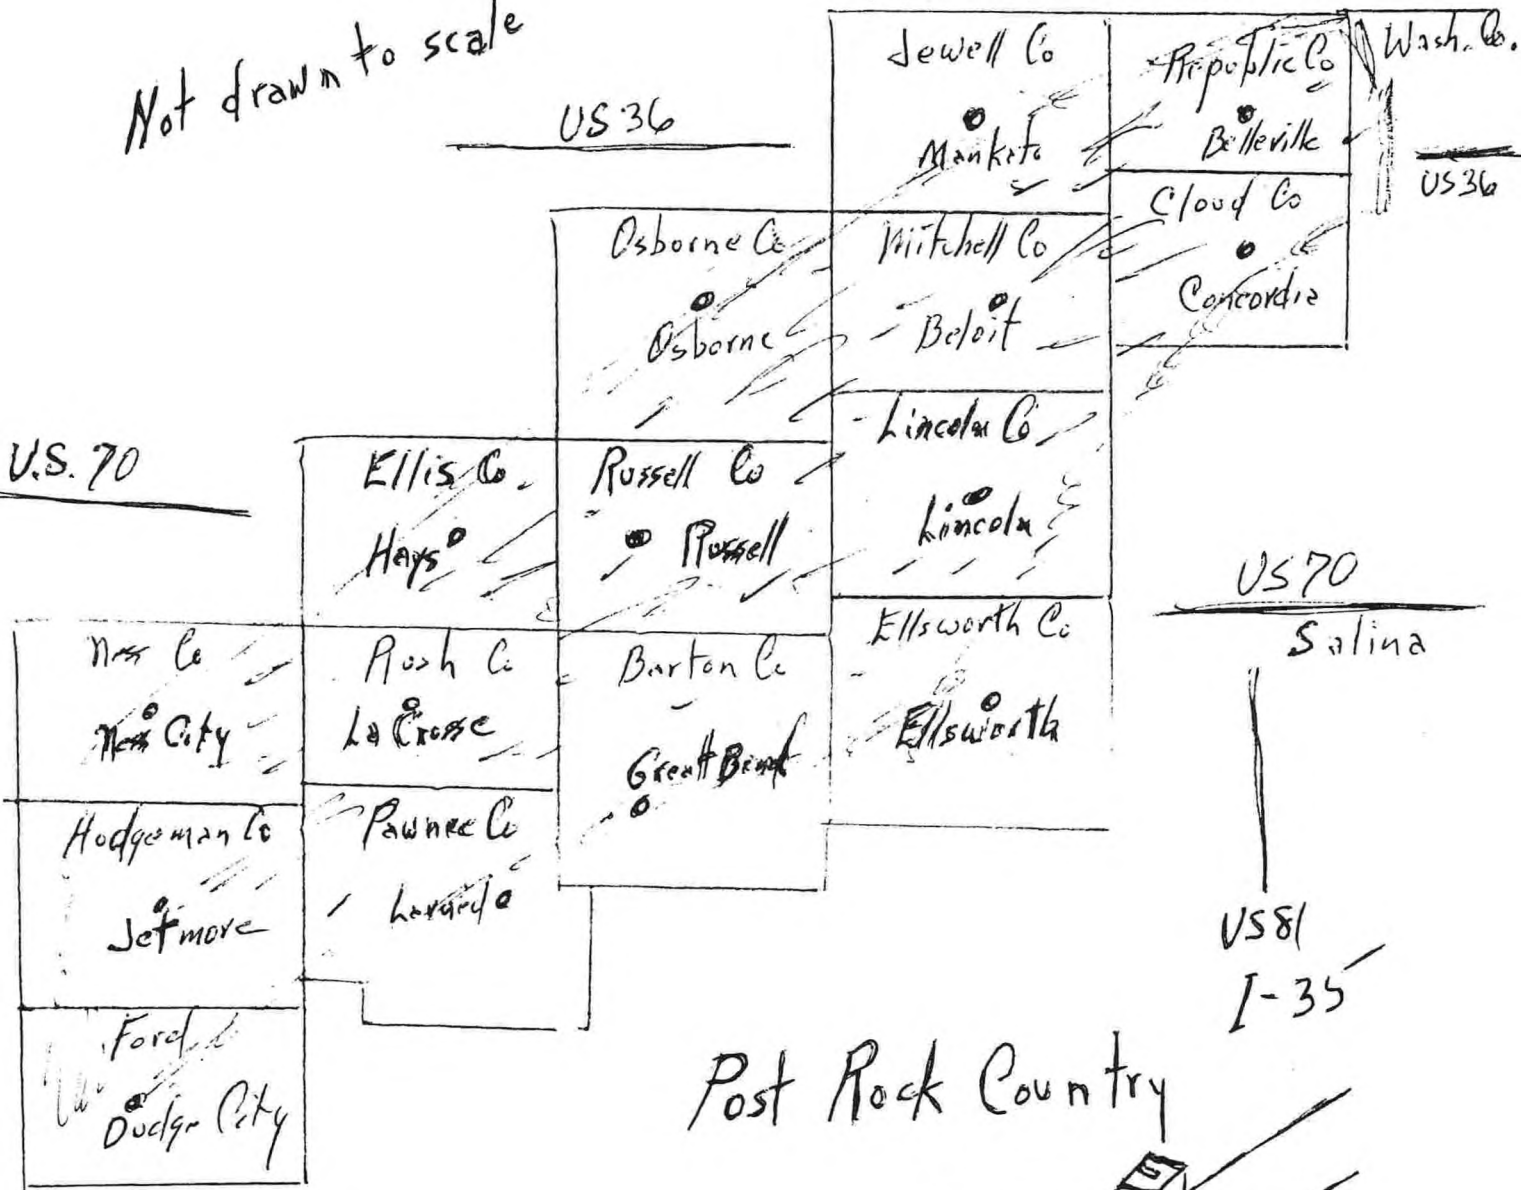 Not drawn to scale
US 36
Jewell Co
Mankato
Republic Co
Belleville
Wash. Co.
US 36
Osborne Co
Osborne
Mitchell Co
Beloit
Cloud Co
Concordia
U.S. 70
Ellis Co.
Hays
Russell Co
Russell
Lincoln Co
Lincoln
US 70
Salina
Ness Co
Ness City
Rush Co
La Crosse
Barton Co
Great Bend
Ellsworth Co
Ellsworth
Hodgeman Co
Jetmore
Pawnee Co
Larned
US 81
I-35
Ford
Dodge City
Post Rock Country